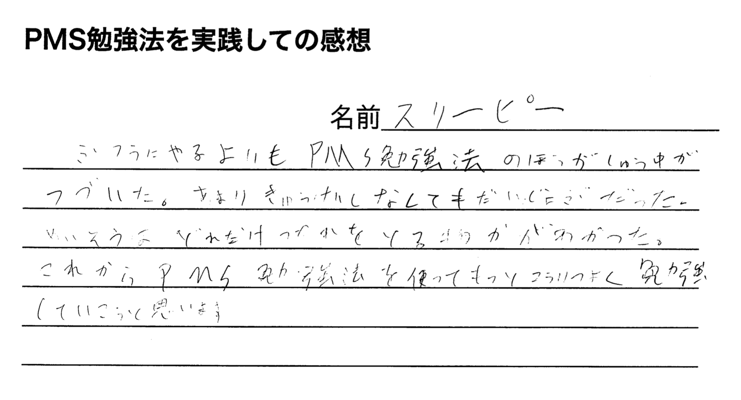 PMS勉強法を実践しての感想
名前 スリーピー
ふつうにやるよりも PMS勉強法 のほうがしゅう中が
つづいた。あまりきゅうけいしなくてもだいじょうぶだった。
どれだけ かがわかった。
これから PMS 勉強法を使ってもっとこうりつよく 勉強
していこうと思います